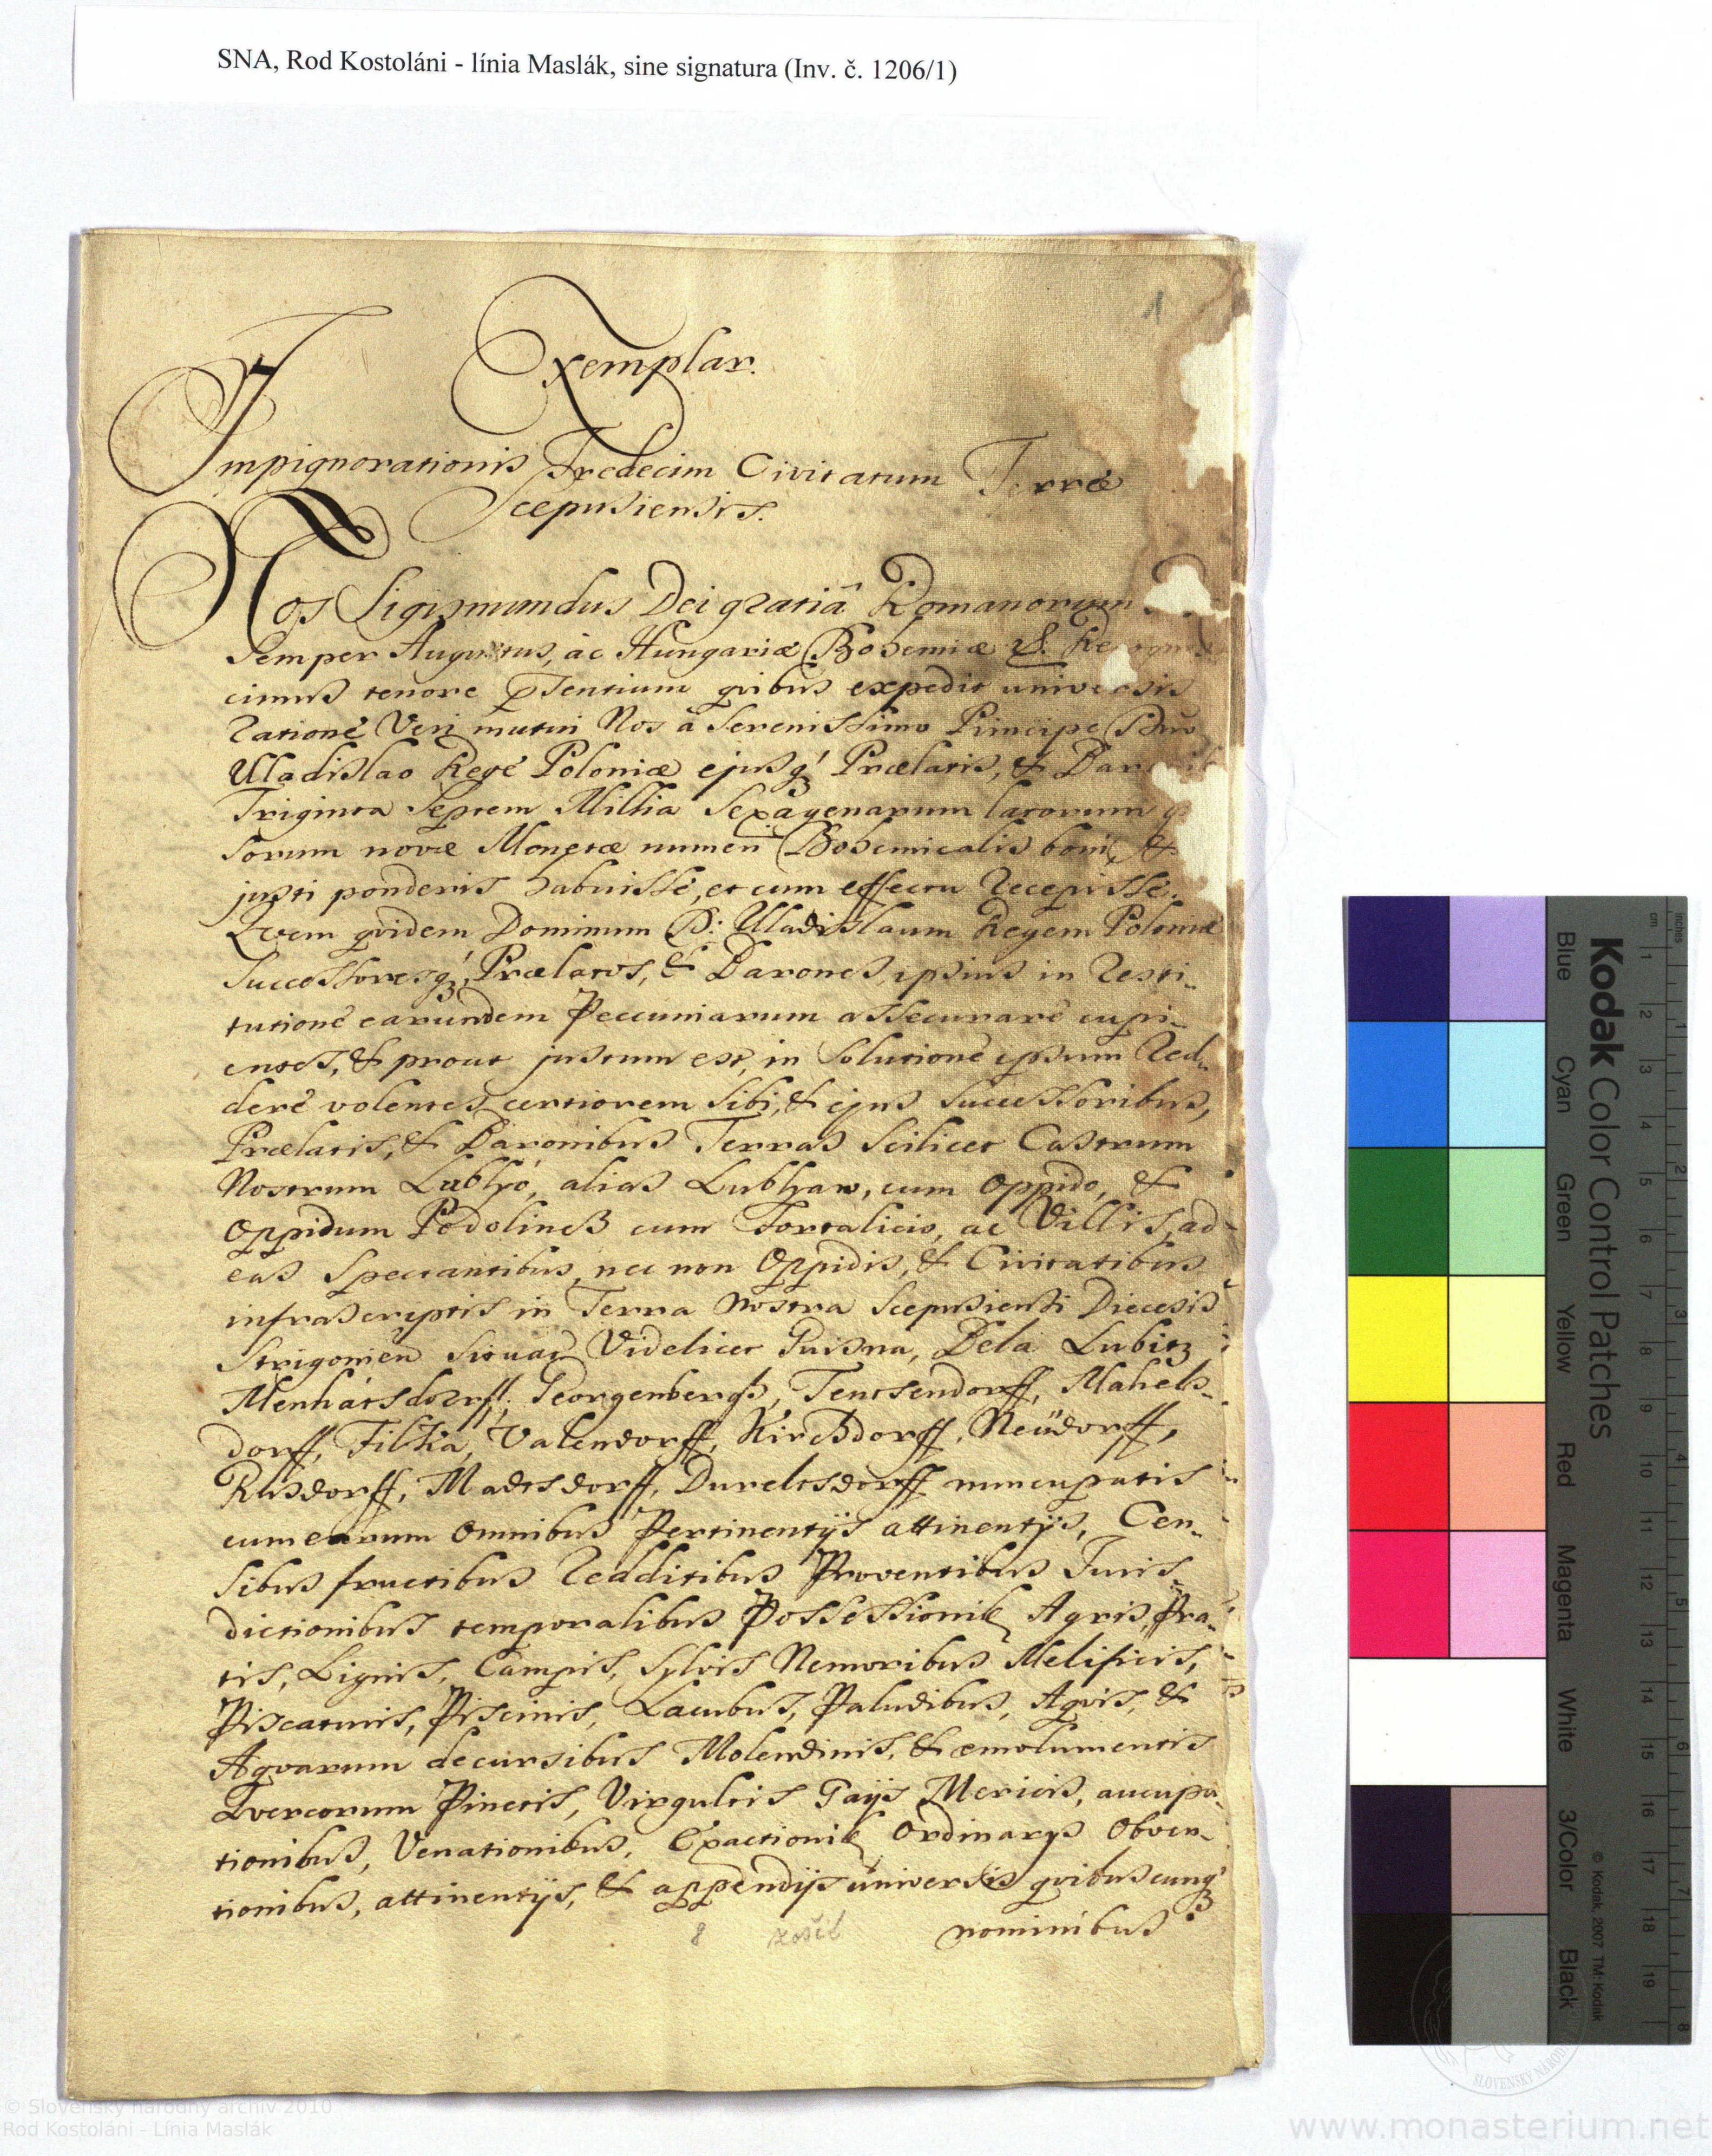 SNA, Rod Kostoláni - línia Maslák, sine signatura (Inv. č. 1206/1)
1
Exemplar.
Impignorationis Tredecim Civitatum Terræ
Scepusiensis.
Nos Sigismundus Dei gratiâ Romanorum
Semper Augustus, ác Hungariæ Bohemiæ &
cimus tenore pñtentium qvibus expedit universis
Ratione Veri mutui Nos á Serenissimo Principe Dño
Uladislao Regé Poloniæ ejusq́ Prælatis, &
Triginta Septem Millia Sexagenarum latorum
sorum novæ Monetæ numeri Bohemicalis boni, &
justi ponderis habuissé, et cum effectu Recepissé.
Qvem qvidem Dominum D: Uladislaum Regem Poloniæ
Successoresq́, Prælatos, & Barones ipsius in Resti-
tutioné earundem Peccuniarum assecuraré cupi-
entes, & prout justum est, in Solutioné ipsum Red-
deré volentes certiorem Sibi, & ejus Successoribus,
Prælatis, & Baronibus Terras Scilicet Castrum
Nostrum Lublyó, alias Lublyaw, cum Oppido, &
Oppidum Podolineß cum Fortalicio, ac Villis, ad
eas Spectantibus, nec non Oppidis, & Civitatibus
infrascriptis in Terra Nostra Scepusiensi Diecesis
Strigonien Situat Videlicet Bela Lubitz
Menhátsdorff, Georgenbergh, Tentsendorff, Mahels-
dorff, Filkia, Valendorff, Kirchdorff, Neüdorff,
Rusdorff, Madtsdorff, Dureltsdorff nuncupatis
cum earum Omnibus Pertinentÿs attinentÿs, Cen-
Sibus fructibus Redditibus Proventibus Juris-
dictionibus temporalibus Possessionib Agris, Pra-
tis, Lignis, Campis, Sylvis Nemoribus Melificis,
Piscaturis, Piscinis, Lacubus, Paludibus, Aqvis, &
Aqvarum decursibus Molendinis, & æmolumentis
Qvercorum Pinetis, Virgultis Gaÿs Mericis, aucupa-
tionibus, Venationibus, Exactionib Ordinarÿs Obven-
tionibus, attinentÿs, & appendÿs universis qvibuscunq́
nominibus
8
Kodak Color Control Patches
Blue
Cyan
Green
Yellow
Red
Magenta
White
3/Color
Black
© Kodak, 2007 TM: Kodak
inches
cm
1
2
3
4
5
6
7
8
9
10
11
12
13
14
15
16
17
18
19
1
2
3
4
5
6
7
8
© Slovenský národný archív 2010
Rod Kostoláni - Línia Maslák
www.monasterium.net